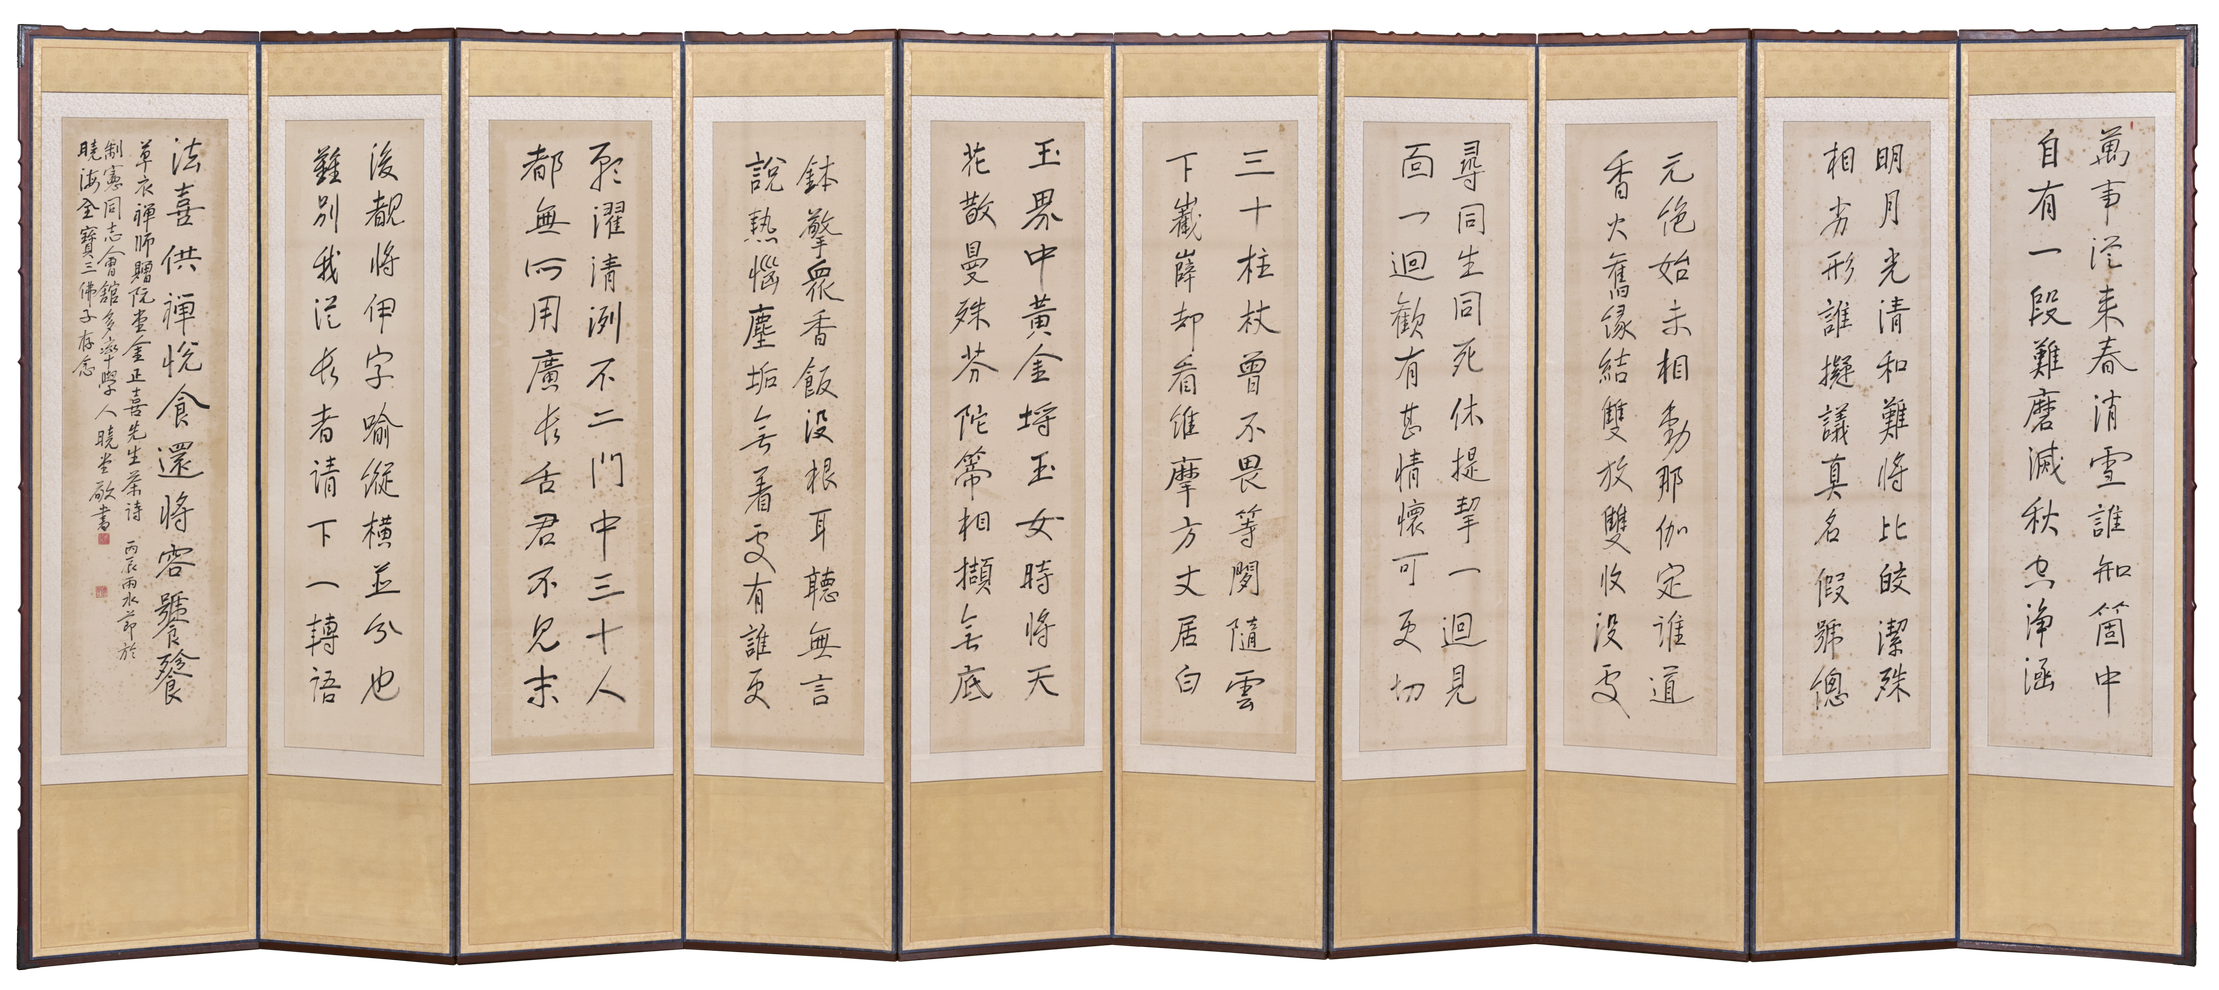 萬事從來春消雪誰知箇中
自有一段難磨滅秋空淨涵
明月光清和難將比皎潔殊
相劣形誰擬議真名假號總
元絶始未相動那伽定谁道
香火舊緣結雙放雙收没處
尋同生同死休提挈一迴見
面一迴歡有甚情懷可更切
三十柱杖曾不畏等閑隨雲
下巀嶭却看維摩方丈居白
玉界中黃金埒玉女時將天
花散曼殊芬陀常相擷無底
鉢擎衆香飯没根耳聽無言
說熱惱塵垢無著處有誰更
願濯清洌不二門中三十人
都無所用廣長舌君不見末
後覩將伊字喻縱橫並分也
難別我從長者请下一轉語
法喜供禅悅食還將容饕餮
草衣禅師贈阮堂金正喜先生茶詩 丙辰雨水節於
制憲同志會舘多率學人曉堂敬書
曉海全寶三佛子存念